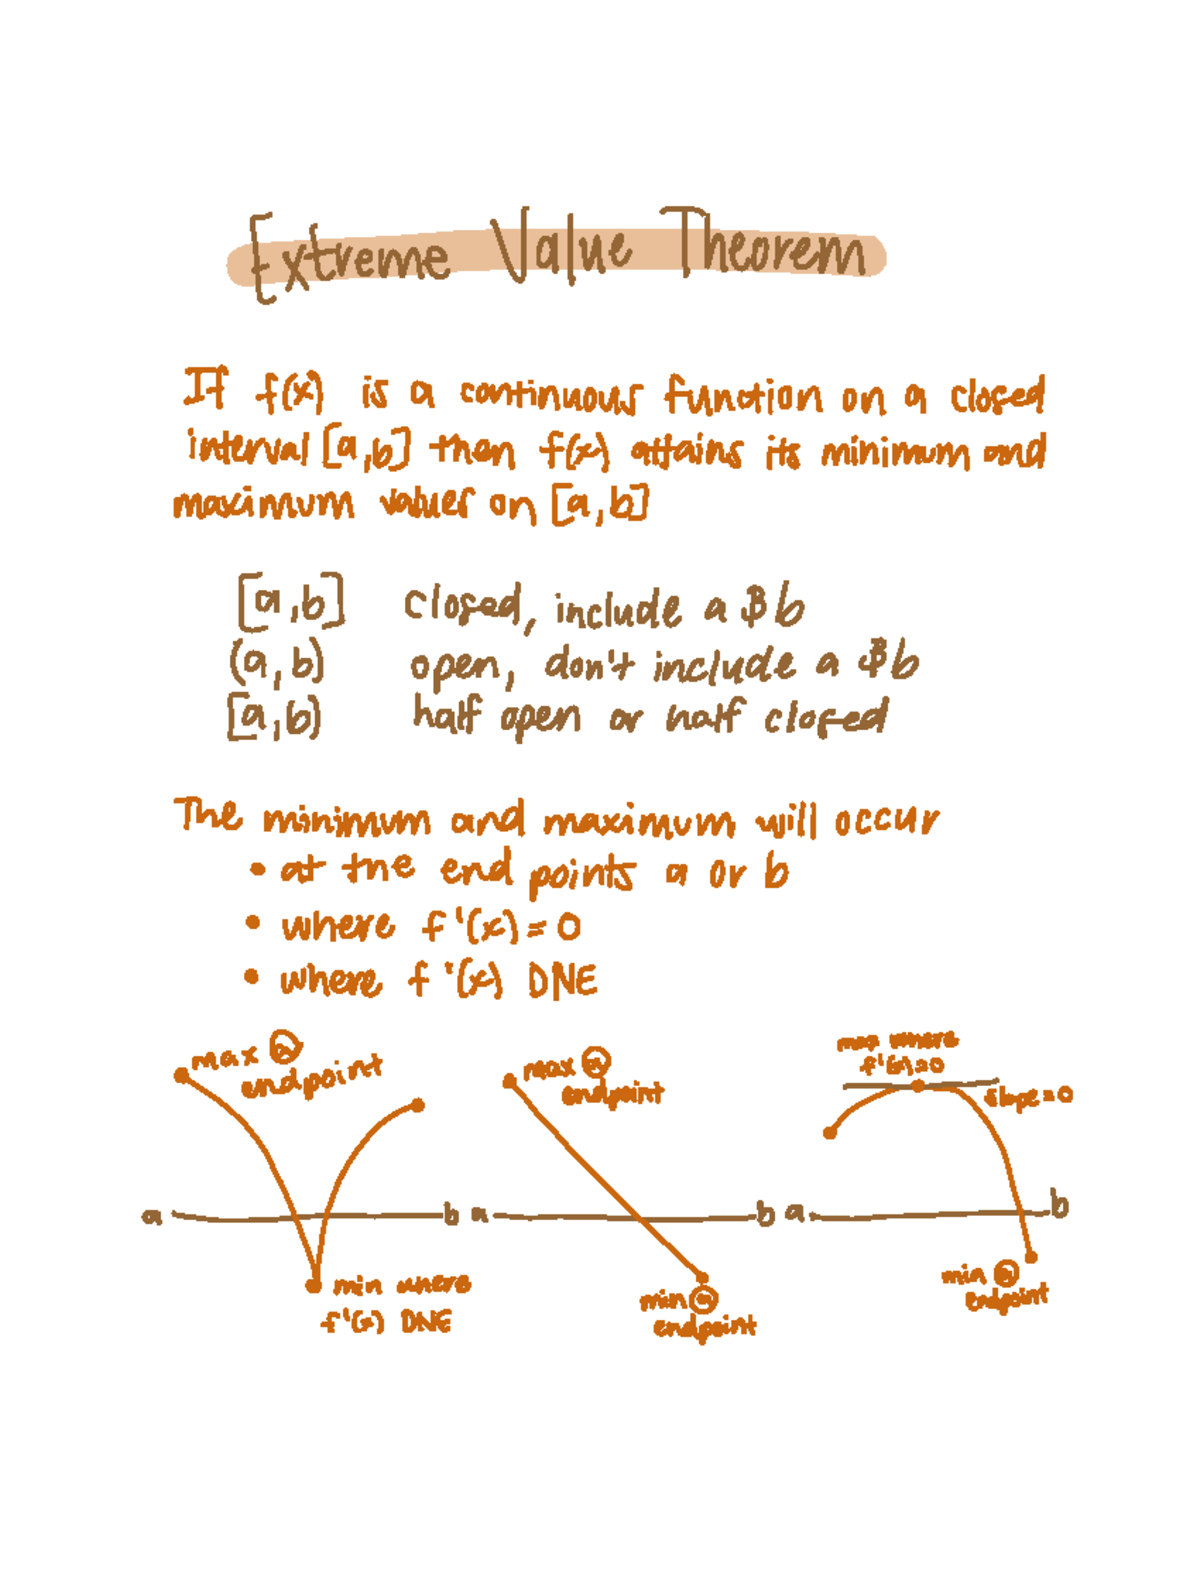 Extreme Value Theorem
If f(x) is a continuous function on a closed
interval [a,b] then f(x) attains its minimum and
maximum values on [a,b]
[a,b] closed, include a & b
(a,b) open, don't include a & b
[a,b) half open or half closed
The minimum and maximum will occur
• at the end points a or b
• where f'(x)=0
• where f'(x) DNE
max @
endpoint
a
b
min where
f'(x) DNE
max @
endpoint
a
b
min @
endpoint
max where
f'(x)=0
slope=0
a
b
min @
endpoint